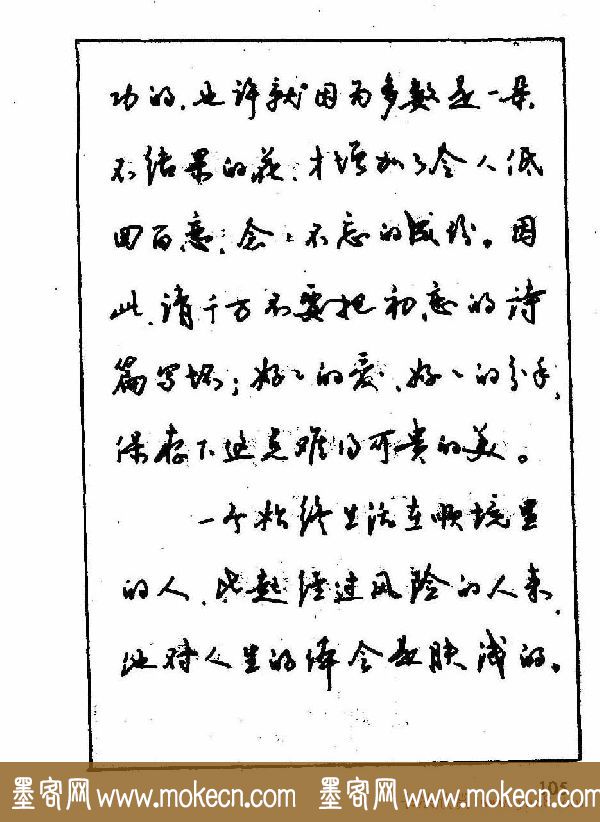 功的，也许就因为多数是一朵
不结果的花，才增加了令人低
回百恋，念〻不忘的成份。因
此，请千万不要把初恋的诗
篇写坏；好〻的爱，好〻的分手，
保存下这点难得可贵的美。
一个始终生活在顺境里
的人，比起经过风险的人来，
他对人生的体会是肤浅的。
105
墨客网 www.mokecn.com 墨客网 www.mokecn.com